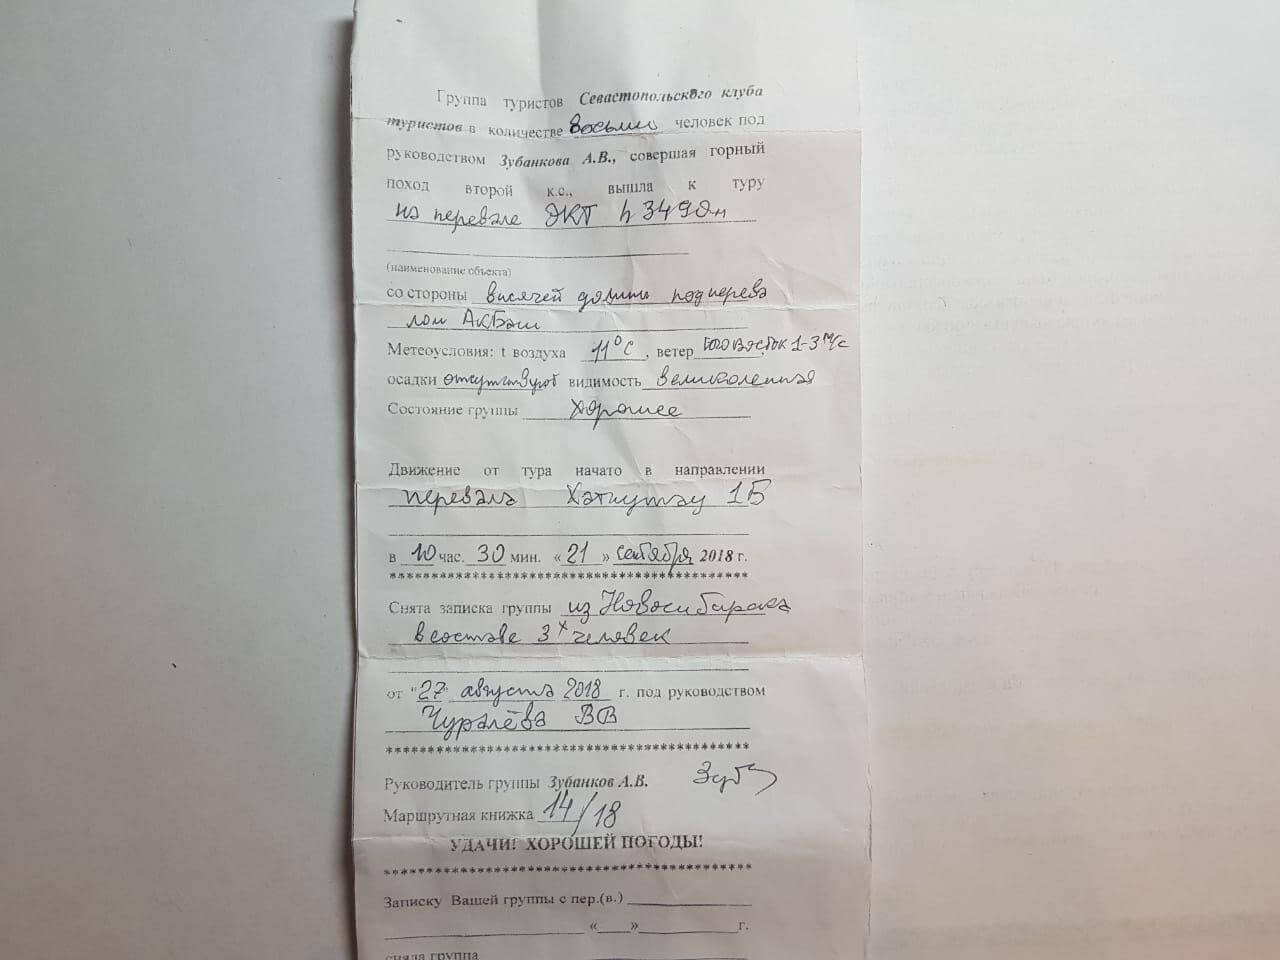 Группа туристов Севастопольского клуба
туристов в количестве восьми человек под
руководством Зубанкова А.В., совершая горный
поход второй к.с., вышла к туру
на перевале ЭКТ h 3490м
(наименование объекта)
со стороны висячей долины под перева
лом АкБаш
Метеоусловия: t воздуха 11°С, ветер Юго восток 1-3 м/с
осадки отсутствуют видимость великолепная
Состояние группы Хорошее
Движение от тура начато в направлении
перевала Хатиутау 1Б
в 10 час. 30 мин. «21» сентября 2018 г.
*******************************************
Снята записка группы из Новосибирска
в составе 3х человек
от "27" августа 2018 г. под руководством
Чуралёва ВВ
*******************************************
Руководитель группы Зубанков А.В. Зуб
Маршрутная книжка 14/18
УДАЧИ! ХОРОШЕЙ ПОГОДЫ!
*******************************************
Записку Вашей группы с пер.(в.)
«____»____________г.
сняла группа